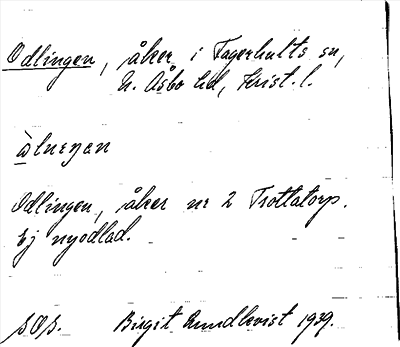 Odlingen, åker i Fagerhults sn,
N. Åsbo hd, Krist. l.
Odlingen, åker nr 2 Trottatorp.
Ej nyodlad.
SOS. Birgit Rundkvist 1939.